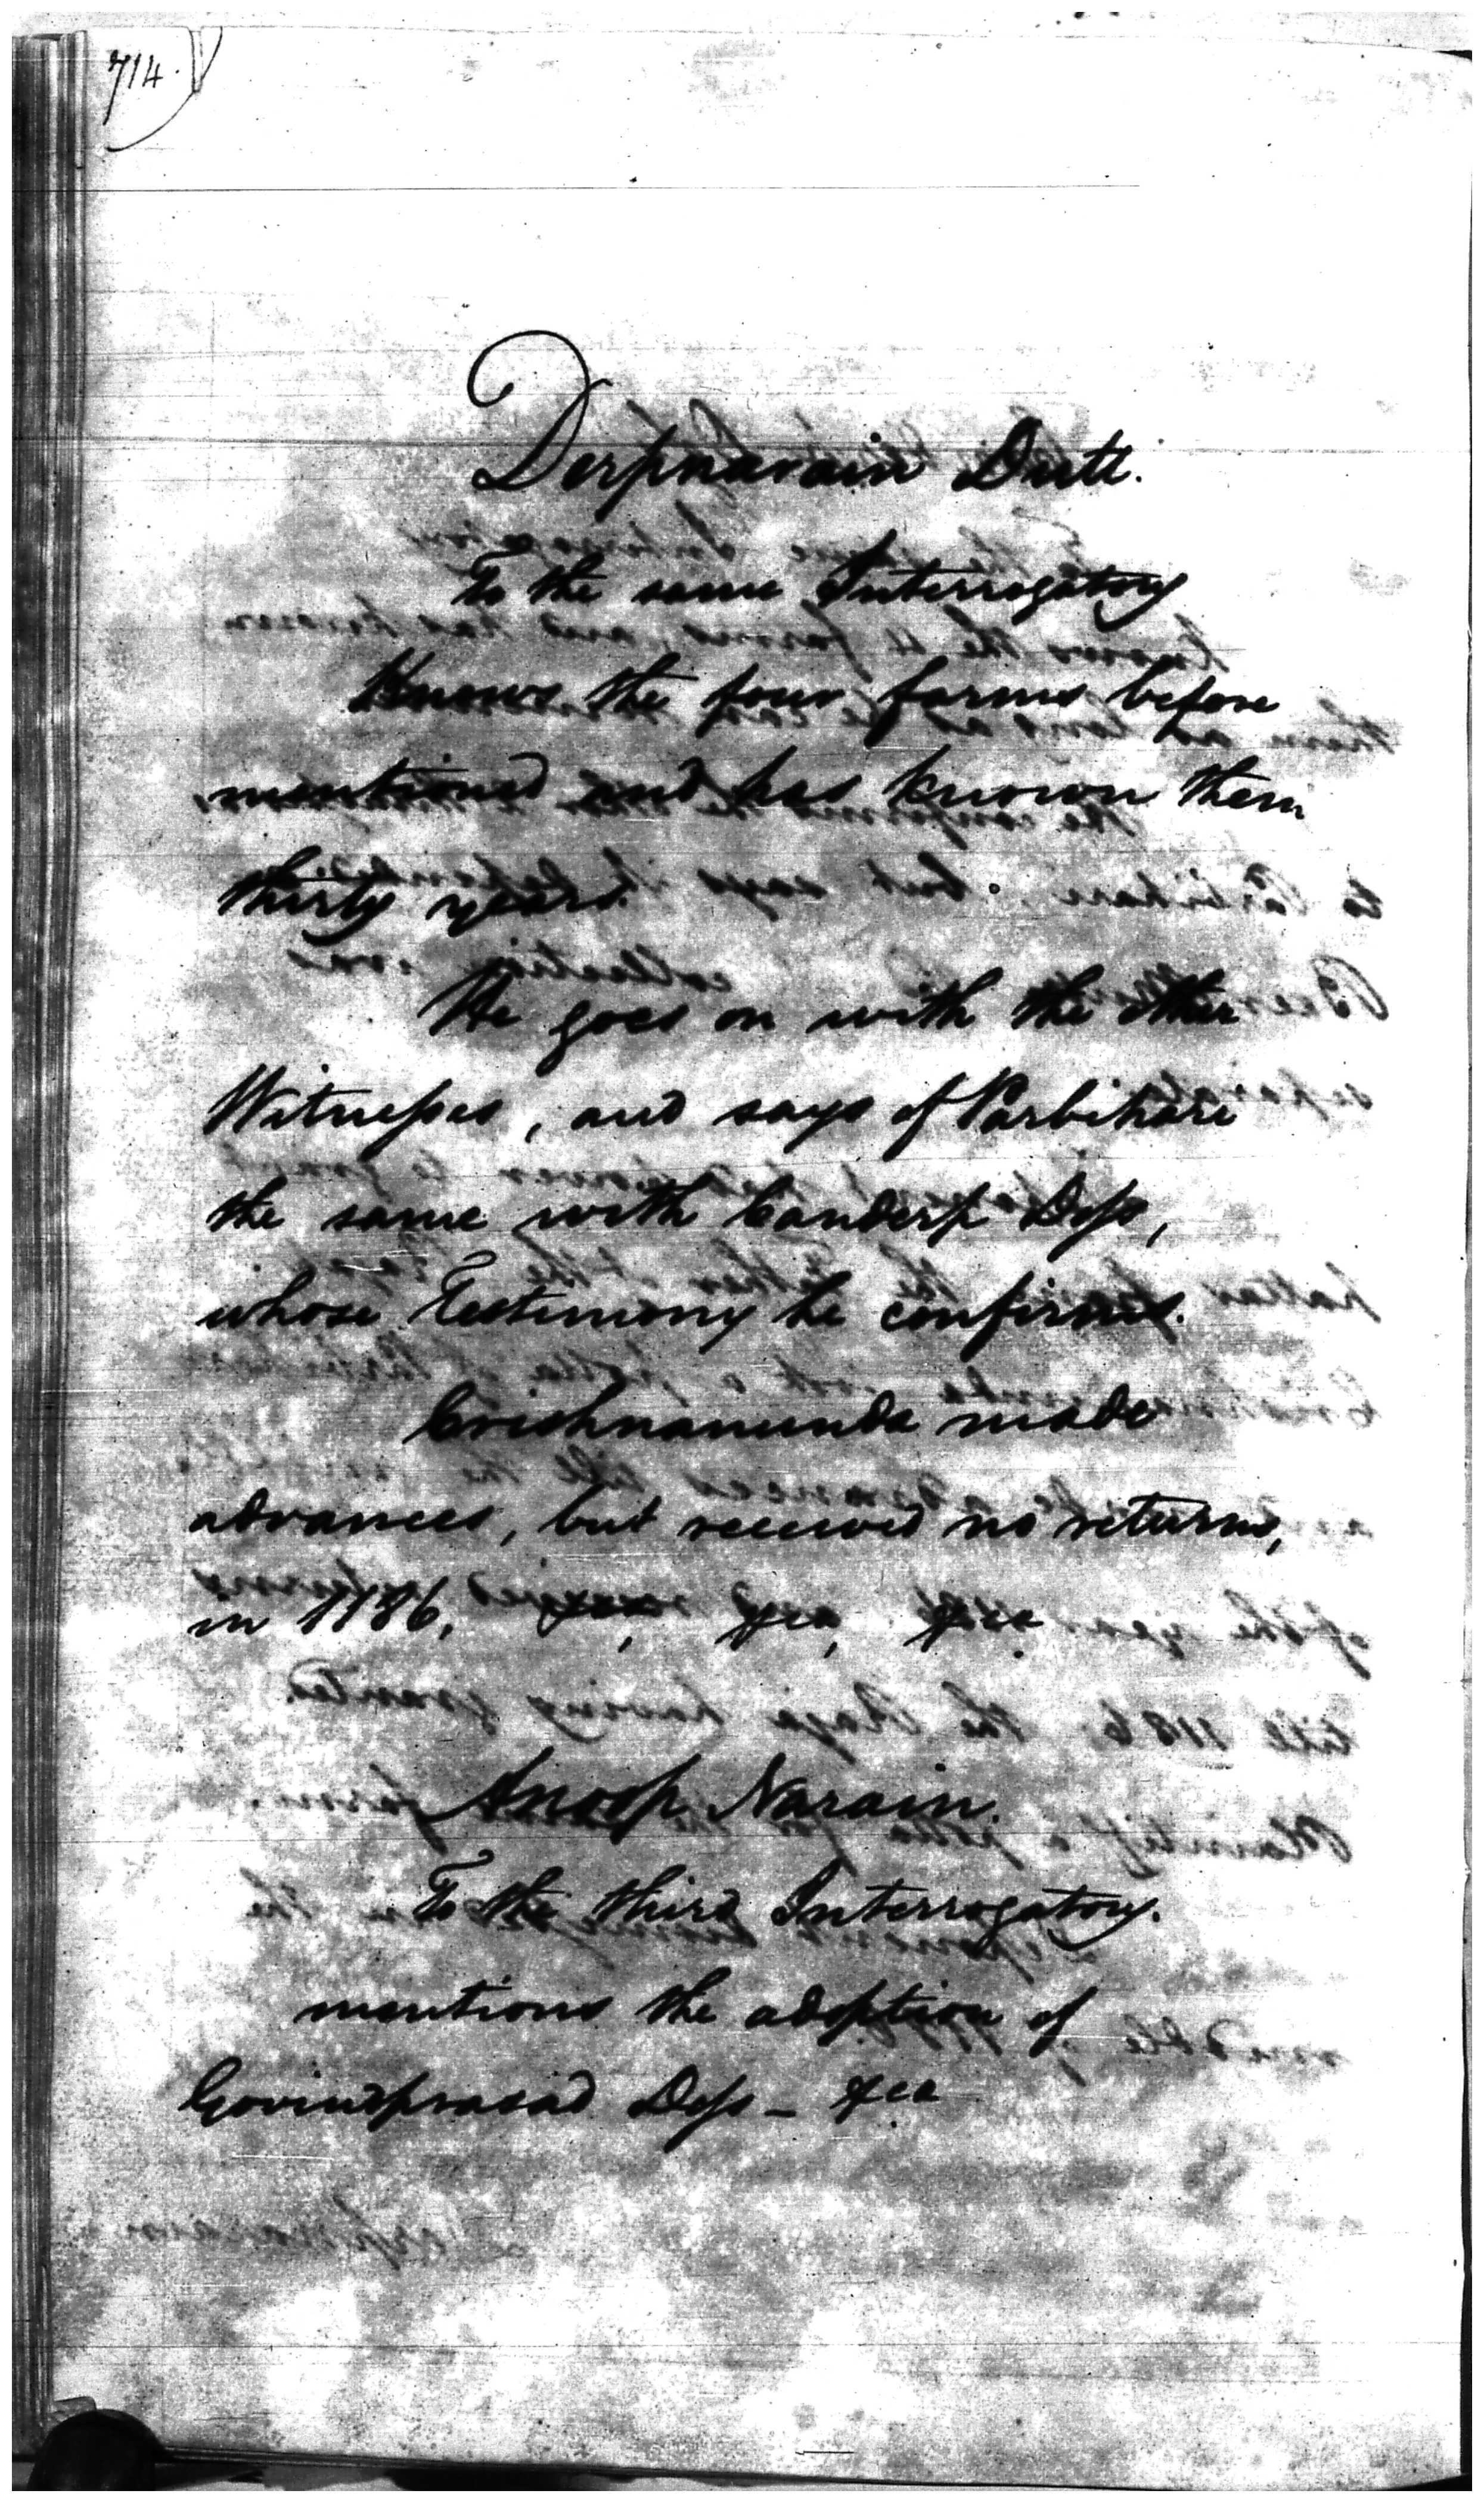 714.
Derpnarain Dutt.
To the same Interrogatory
Knows the four farms before
mentioned and has known them
thirty years.
He goes on with the other
Witnesses, and says of Parbihare
the same with Canderp Dess,
whose Testimony he confirms.
Crishnanunda made
advances, but received no returns,
in 1186, &ca, &ca, &ca
Anoop Narain.
To the third Interrogatory.
mentions the adoption of
Govindprasad Dess - &ca